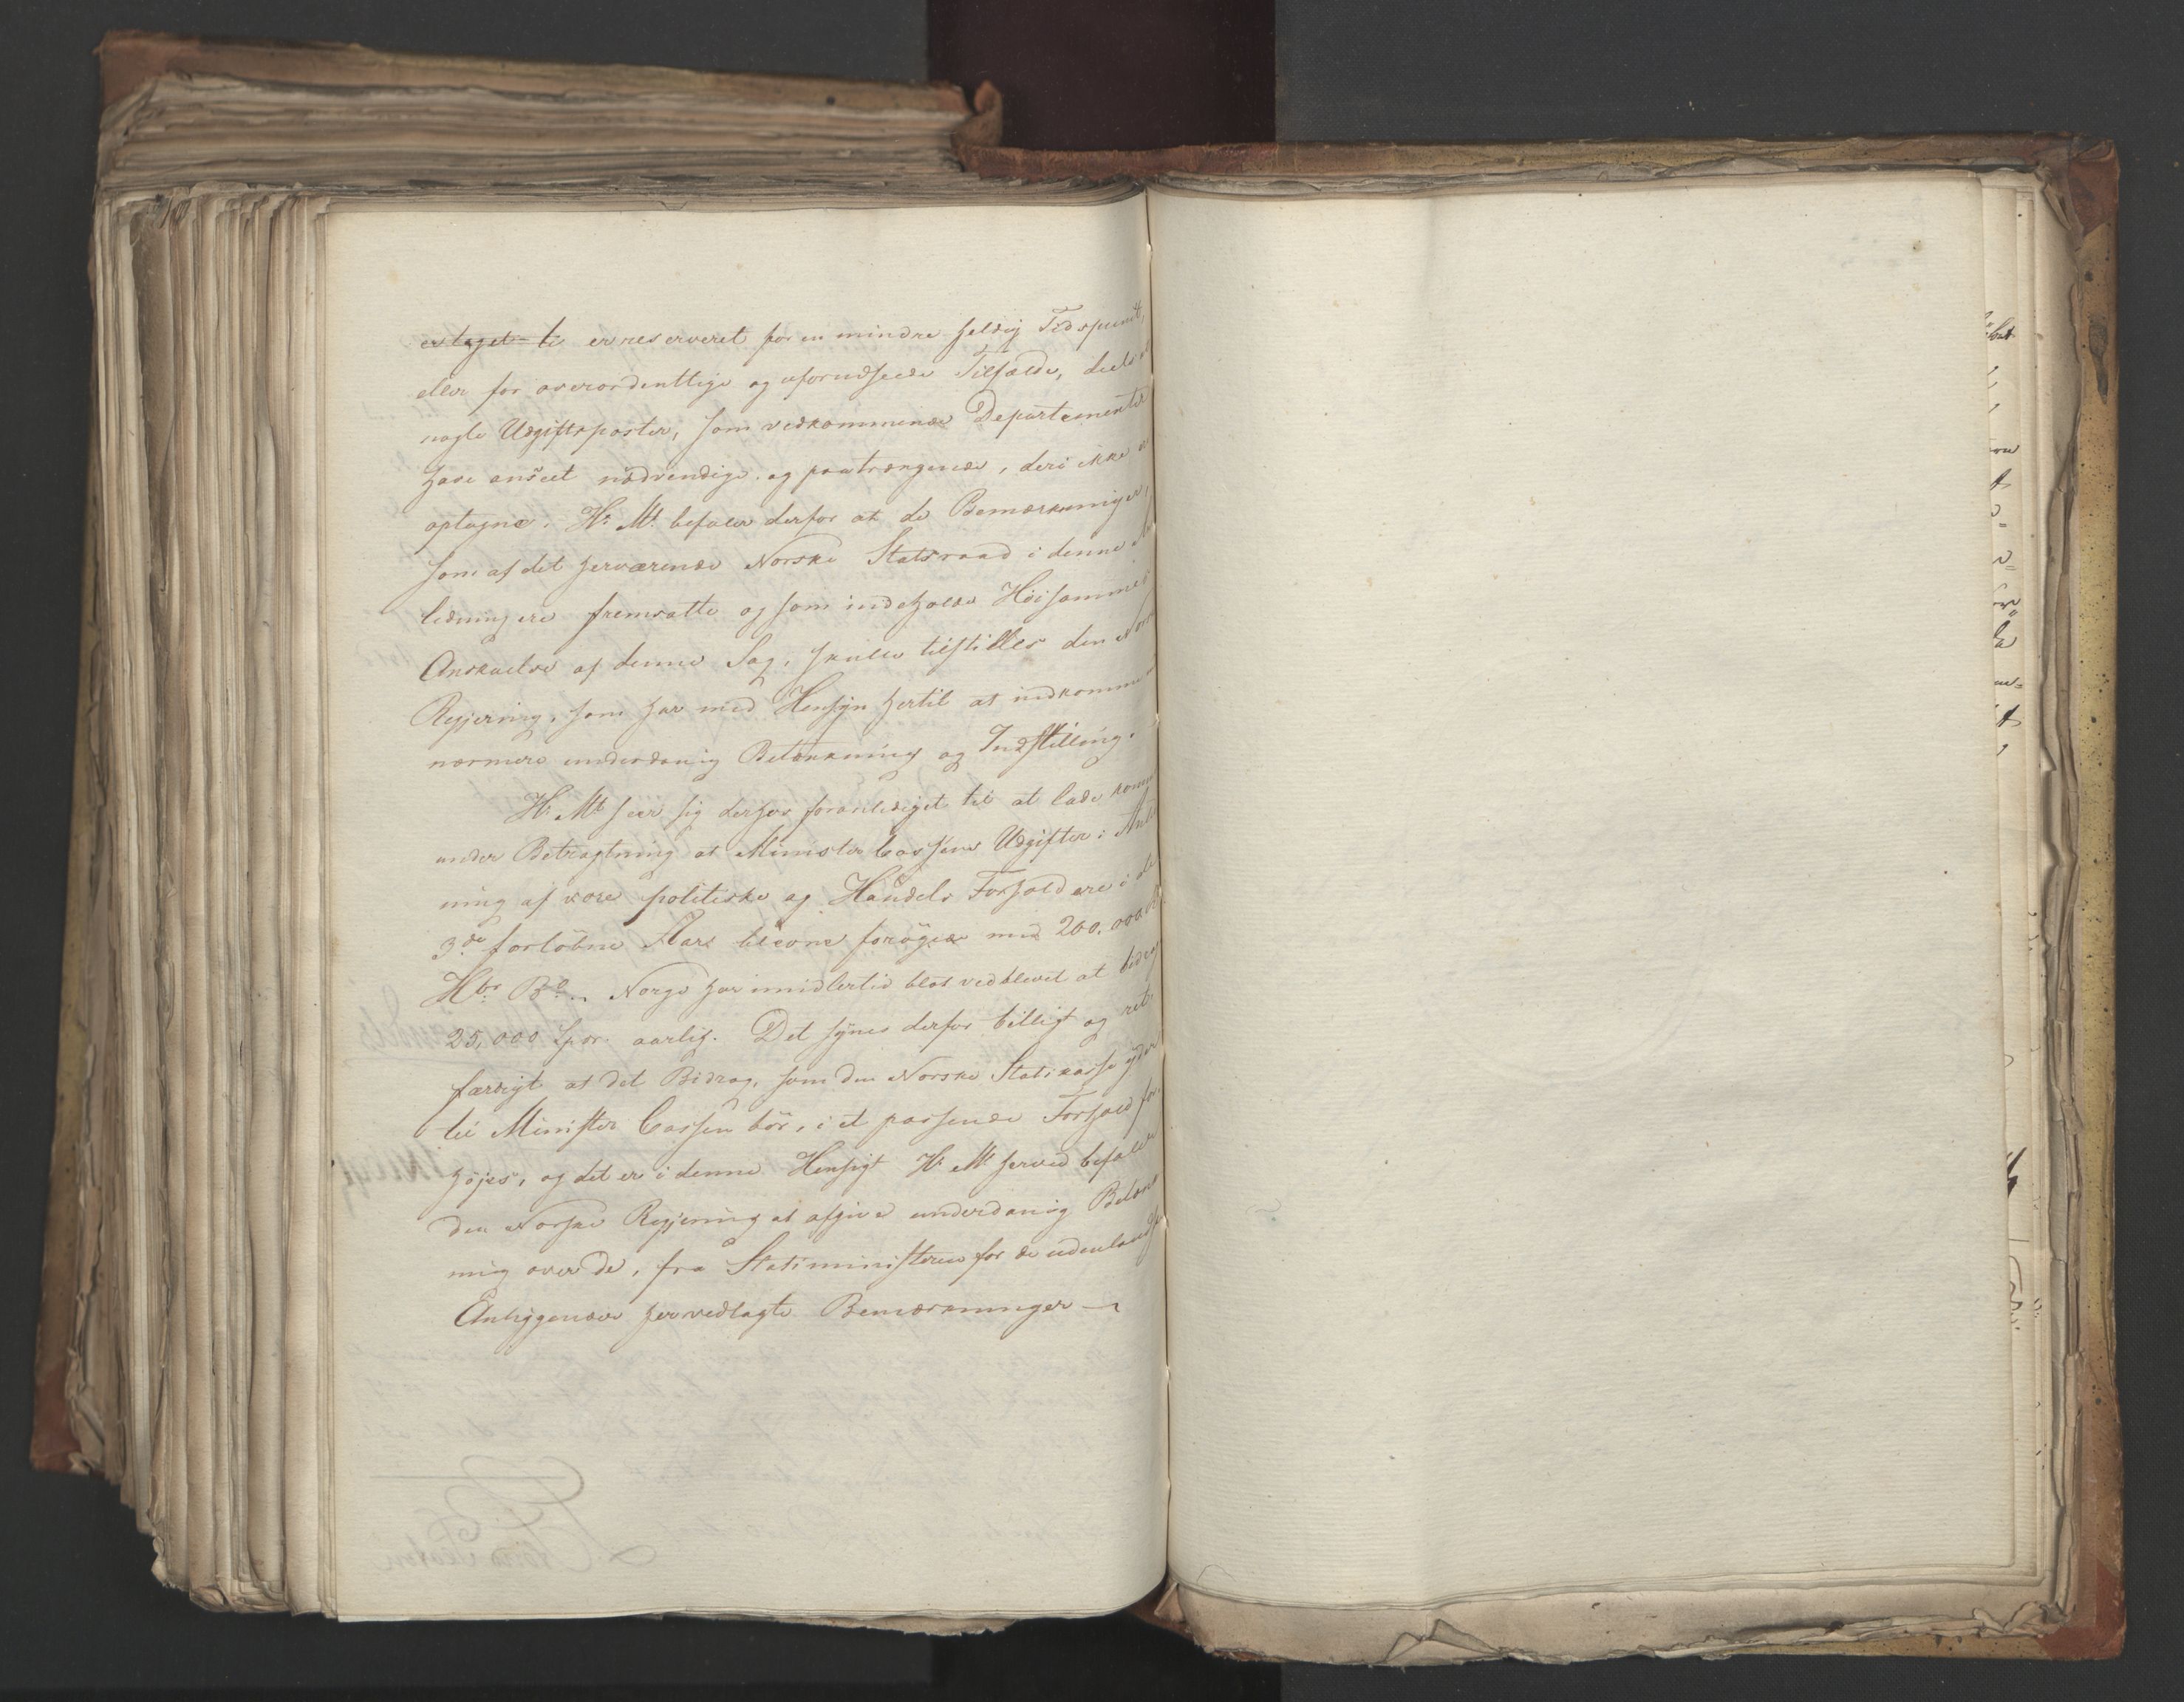 er taget ti er reserveret for en mindre heldig Tidspunct,
eller for overordenttlige og uforudseede Tilfælde, deels at
nogle Udgiftsposter, som vedkommende Departementer
have anseet nödvendige og paatrængende, deri ikke ere
optagne. H: Mt befaler derfor at de Bemærkninger,
som af det herværende Norske Statsraad i denne An
ledning ere fremsatte og som indeholde Höisammes
Anskuelse af denne Sag, skulle tilstilles den Norske
Regjering, som har med Hensyn hertil at indkomme
nærmere underdanig Betænkning og Indstilling.
H: Mt seer sig derhos foranlediget til at lade komme
under Betragtning at Minister Cassens Udgifter i Anled
ning af vore politiske og Handels Forhold ere i de
3de forlöbne Aar blevne forögede med 200,000
Hbr Bo. Norge har imidlertid blot vedblevet at bidrage
25,000 Spdr. aarlig. Det synes derfor billigt og ret
færdigt at det Bidrag, som den Norske Statskasse yder
til Minister Cassen bör, i et passende Forhold for
höjes, og det er i denne Hensigt H: Mt herved befaler
den Norske Regjering at afgive underdanig Betænk
ning over de, fra Statsministeren for de udenlandske
Anliggender hervedlagte Bemærkninger